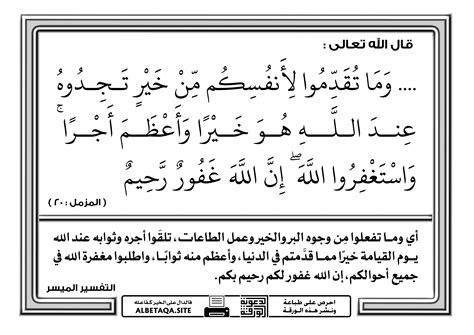 قال الله تعالى :
.... وَمَا تُقَدِّمُوا لِأَنفُسِكُم مِّنْ خَيْرٍ تَجِدُوهُ
عِندَ اللَّهِ هُوَ خَيْرًا وَأَعْظَمَ أَجْرًا ۚ
وَاسْتَغْفِرُوا اللَّهَ ۖ إِنَّ اللَّهَ غَفُورٌ رَّحِيمٌ
( المزمل : ٢٠ )
أي وما تفعلوا مِن وجوه البر والخير وعمل الطاعات، تلقَوا أجره وثوابه عند الله
يوم القيامة خيرًا مما قدَّمتم في الدنيا، وأعظم منه ثوابًا، واطلبوا مغفرة الله في
جميع أحوالكم، إن الله غفور لكم رحيم بكم.
التفسير الميسر
احرص على طباعة
ونشر هذه الورقة
فالدال على الخير كفاعله
ALBETAQA.SITE